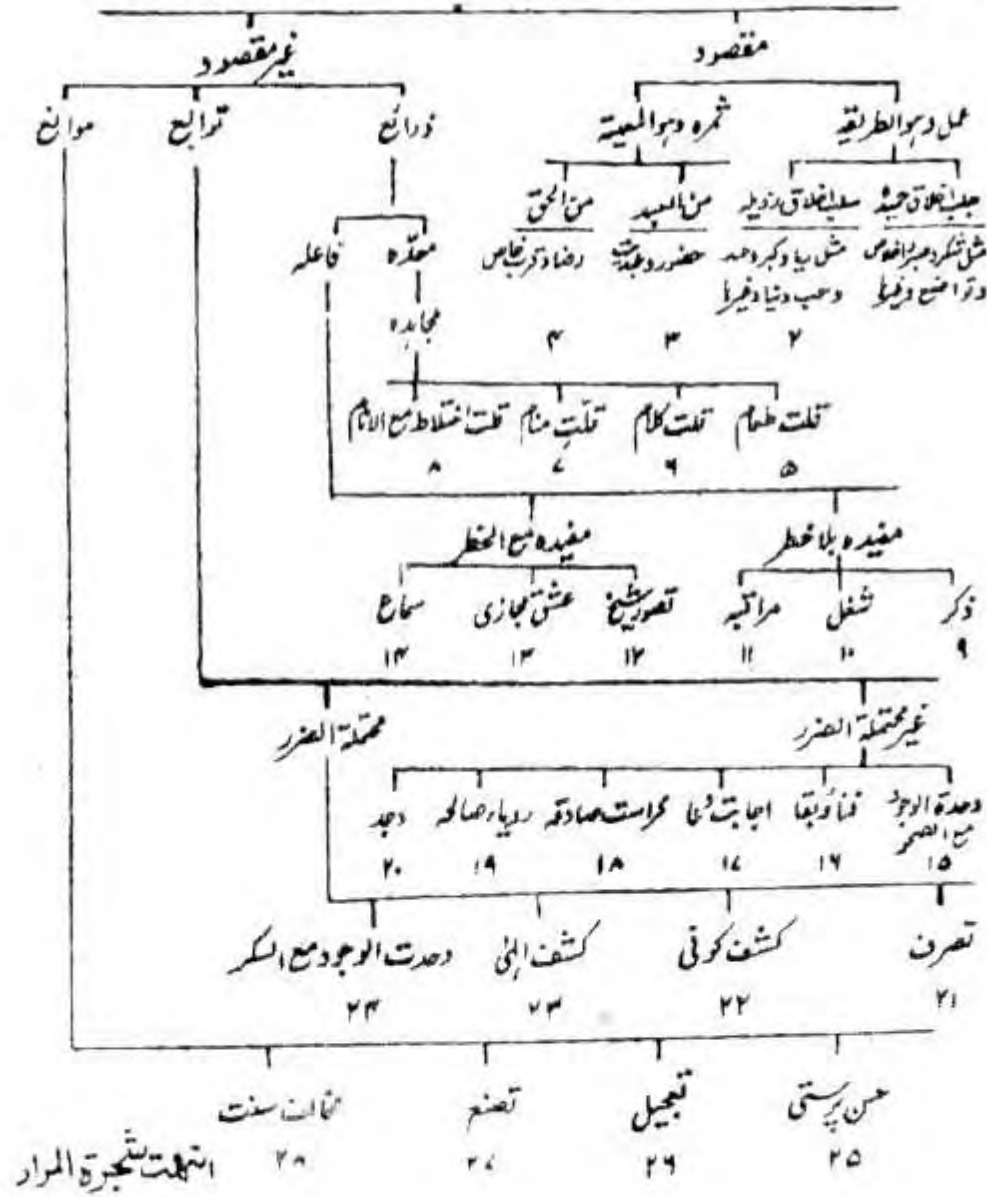 مقصود غیر مقصود
عمل وہو الطریقہ ثمرہ وہو المعیتہ ذرائع توابع موانع
جلب اخلاق حمیدہ سلب اخلاق رذیلہ من العبد من الحق
مثل شکر و صبر و اخلاص مثل ریا و کبر و حسد حضور و عبدیت رضا و قرب خاص
و تواضع وغیرہا و حب دنیا وغیرہا
معدّہ فاعلہ
۲ ۳ ۴
مجاہدہ
قلت طعام قلت کلام قلّتِ منام قلت اختلاط مع الانام
۵ ۶ ۷ ۸
مفیدہ بلا خطر مفیدہ مع الخطر
ذکر شغل مراقبہ تصور شیخ عشق مجازی سماع
۹ ۱۰ ۱۱ ۱۲ ۱۳ ۱۴
غیر محتملۃ الضرر محتملۃ الضرر
وحدۃ الوجود فنا و بقا اجابت دعا فراست صادقہ رویاء صالحہ وجد
مع الصحو
۱۵ ۱۶ ۱۷ ۱۸ ۱۹ ۲۰
تصرف کشف کونی کشف الہٰی وحدت الوجود مع السکر
۲۱ ۲۲ ۲۳ ۲۴
حسن پرستی تعجیل تصنع مخالفت سنت
۲۵ ۲۶ ۲۷ ۲۸
انتہت شجرۃ المراد